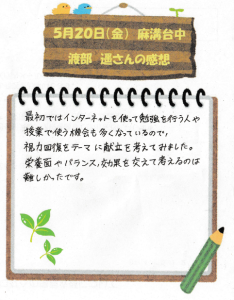 5月20日(金) 麻溝台中
渡部 遥さんの感想
最初ではインターネットを使って勉強を行う人や
授業で使う機会も多くなっているので、
視力回復をテーマに献立を考えてみました。
栄養面やバランス、効果を交えて考えるのは
難しかったです。